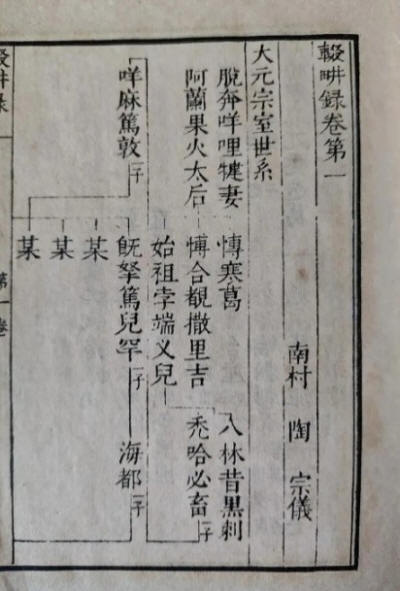 輟畊录卷第一
南村 陶 宗儀
大元宗室世系
脫奔咩哩犍妻
阿蘭果火太后
愽寒葛
愽合覩撒里吉
始祖孛端义兒
八林昔黒剌
禿哈必畜 一子
咩麻篤敦 一子
旣拏篤兒罕 一子
海都 一子
某
某
某
第一卷